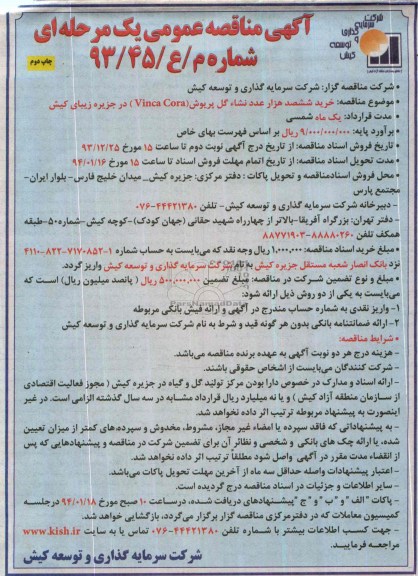 شرکت
سرمایه
گذاری
و توسعه
کیش
آگهی مناقصه عمومی یک مرحله ای
شماره م/ع/۹۳/۴۵
چاپ دوم
• شرکت مناقصه گزار: شرکت سرمایه گذاری و توسعه کیش
• موضوع مناقصه: خرید ششصد هزار عدد نشاء گل پریوش (Vinca Cora) در جزیره زیبای کیش
• مدت قرارداد: یک ماه شمسی
• برآورد پایه: ۹/۰۰۰/۰۰۰/۰۰۰ ریال بر اساس فهرست بهای خاص
• تاریخ فروش اسناد مناقصه: از تاریخ درج آگهی نوبت دوم تا ساعت ۱۵ مورخ ۹۳/۱۲/۲۵
• مدت تحویل اسناد مناقصه: از تاریخ اتمام مهلت فروش اسناد تا ساعت ۱۵ مورخ ۹۴/۰۱/۱۶
• محل فروش اسناد مناقصه و تحویل پاکات: دفتر مرکزی: جزیره کیش_میدان خلیج فارس- بلوار ایران-
مجتمع پارس
- دبیرخانه شرکت سرمایه گذاری و توسعه کیش- تلفن ۴۴۴۲۱۳۸۰-۰۷۶
- دفتر تهران: بزرگراه آفریقا-بالاتر از چهارراه شهید حقانی (جهان کودک)-کوچه کیش-شماره ۵۰-طبقه
همکف تلفن ۸۸۸۸۰۲۶۰-۸۸۷۷۱۹۰۳
• مبلغ خرید اسناد مناقصه: ۱/۰۰۰/۰۰۰ ریال وجه نقد که می‌بایست به حساب شماره ۱-۷۱۷۰۸۵۲-۸۲۲-۴۱۱۰
نزد بانک انصار شعبه مستقل جزیره کیش به نام شرکت سرمایه گذاری و توسعه کیش واریز گردد.
• مبلغ و نوع تضمین شرکت در مناقصه: مبلغ تضمین ۵۰۰/۰۰۰/۰۰۰ ریال ( پانصد میلیون ریال) است که
می‌بایست به یکی از دو روش ذیل ارائه شود:
۱- واریز نقدی به شماره حساب مندرج در آگهی و ارائه فیش بانکی مربوطه
۲- ارائه ضمانتنامه بانکی بدون هر گونه قید و شرط به نام شرکت سرمایه گذاری و توسعه کیش
• شرایط مناقصه:
- هزینه درج هر دو نوبت آگهی به عهده برنده مناقصه می‌باشد.
- شرکت کنندگان می‌بایست از اشخاص حقوقی باشند.
- ارائه اسناد و مدارک در خصوص دارا بودن مرکز تولید گل و گیاه در جزیره کیش ( مجوز فعالیت اقتصادی
از سازمان منطقه آزاد کیش) و یا نه میلیارد ریال قرارداد مشابه در سه سال گذشته الزامی است. در غیر
اینصورت به پیشنهاد مربوطه ترتیب اثر داده نخواهد شد.
- به پیشنهاداتی که فاقد سپرده یا امضاء غیر مجاز، مشروط، مخدوش و سپرده‌های کمتر از میزان تعیین
شده، یا ارائه چک های بانکی و شخصی و نظائر آن برای تضمین شرکت در مناقصه و پیشنهادهایی که پس
از انقضاء مدت مقرر در آگهی واصل شود مطلقاً ترتیب اثر داده نخواهد شد.
- اعتبار پیشنهادات واصله حداقل سه ماه از آخرین مهلت تحویل پاکات می‌باشد.
- سایر اطلاعات و جزئیات در اسناد مناقصه درج گردیده است.
- پاکات "الف" و "ب" و "ج" پیشنهادهای دریافت شده، در ساعت ۱۰ صبح مورخ ۹۴/۰۱/۱۸ در جلسه
کمیسیون معاملات که در دفتر مرکزی مناقصه گزار برگزار می گردد، بازگشایی خواهد شد.
- جهت کسب اطلاعات بیشتر با شماره تلفن ۴۴۴۲۱۳۸۰-۰۷۶ تماس یا به سایت www.kish.ir
مراجعه فرمایید.
شرکت سرمایه گذاری و توسعه کیش